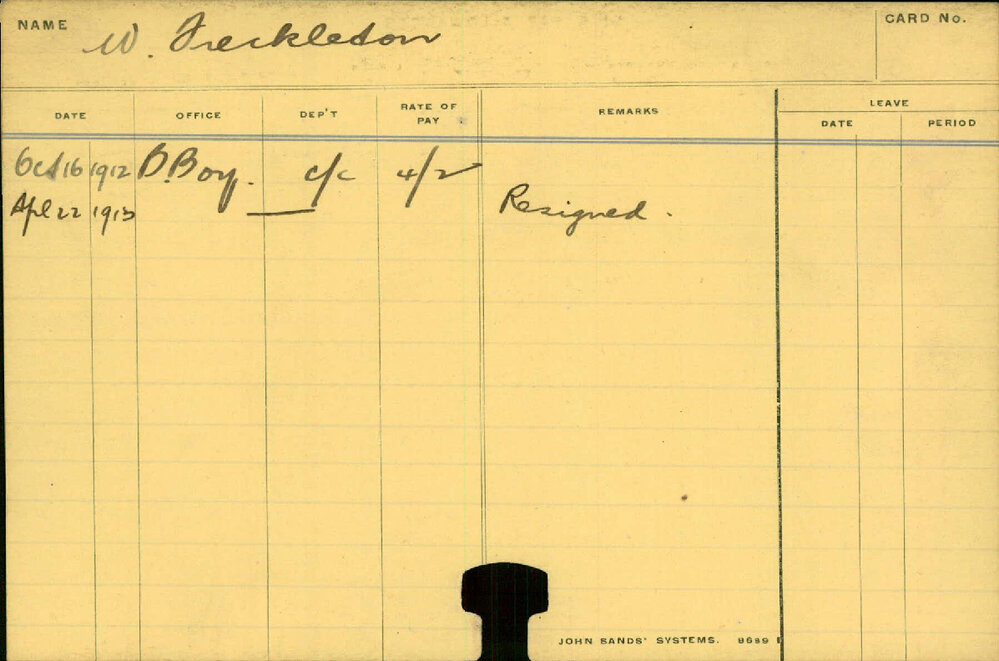 NAME W. Freckleton CARD No.
DATE OFFICE DEP'T RATE OF PAY REMARKS LEAVE
DATE PERIOD
Oct 16 1912 B.Boy. c/c 4/2
Apl 22 1913 Resigned.
JOHN SANDS' SYSTEMS. 8689